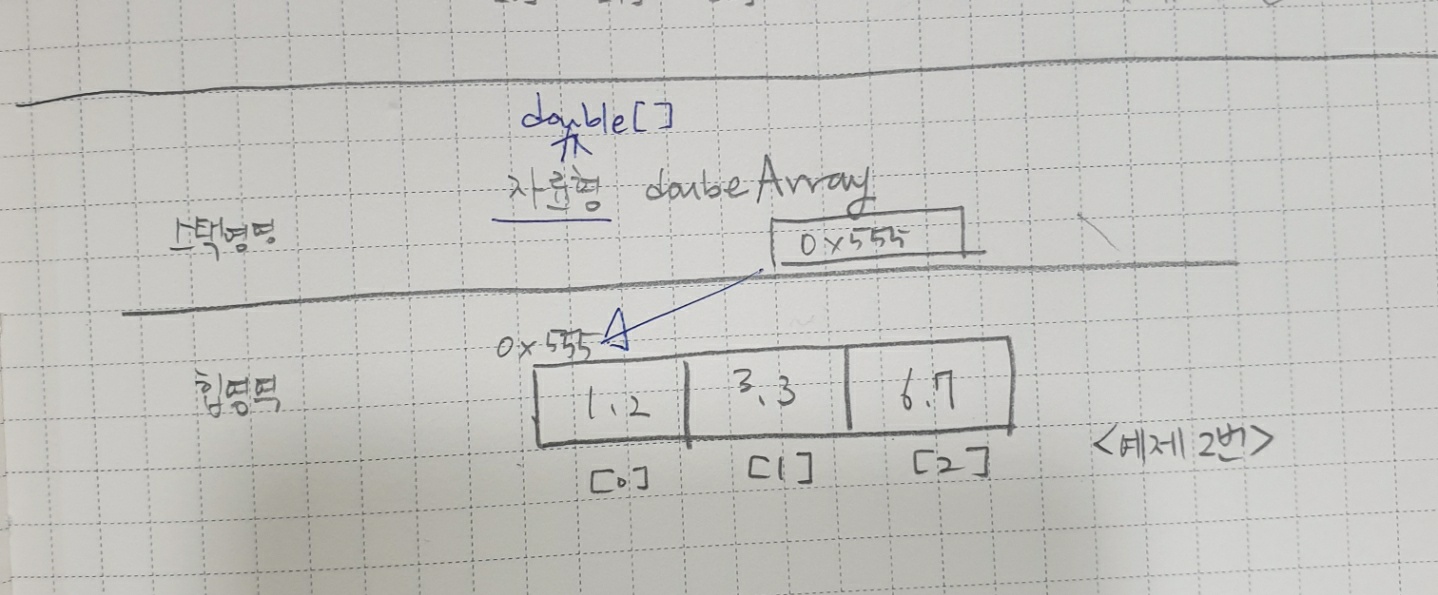 double[]
자료형 doubeArray
스택영역
0x555
0x555
힙영역
1.2 3.3 6.7
[0] [1] [2]
<예제 2번>